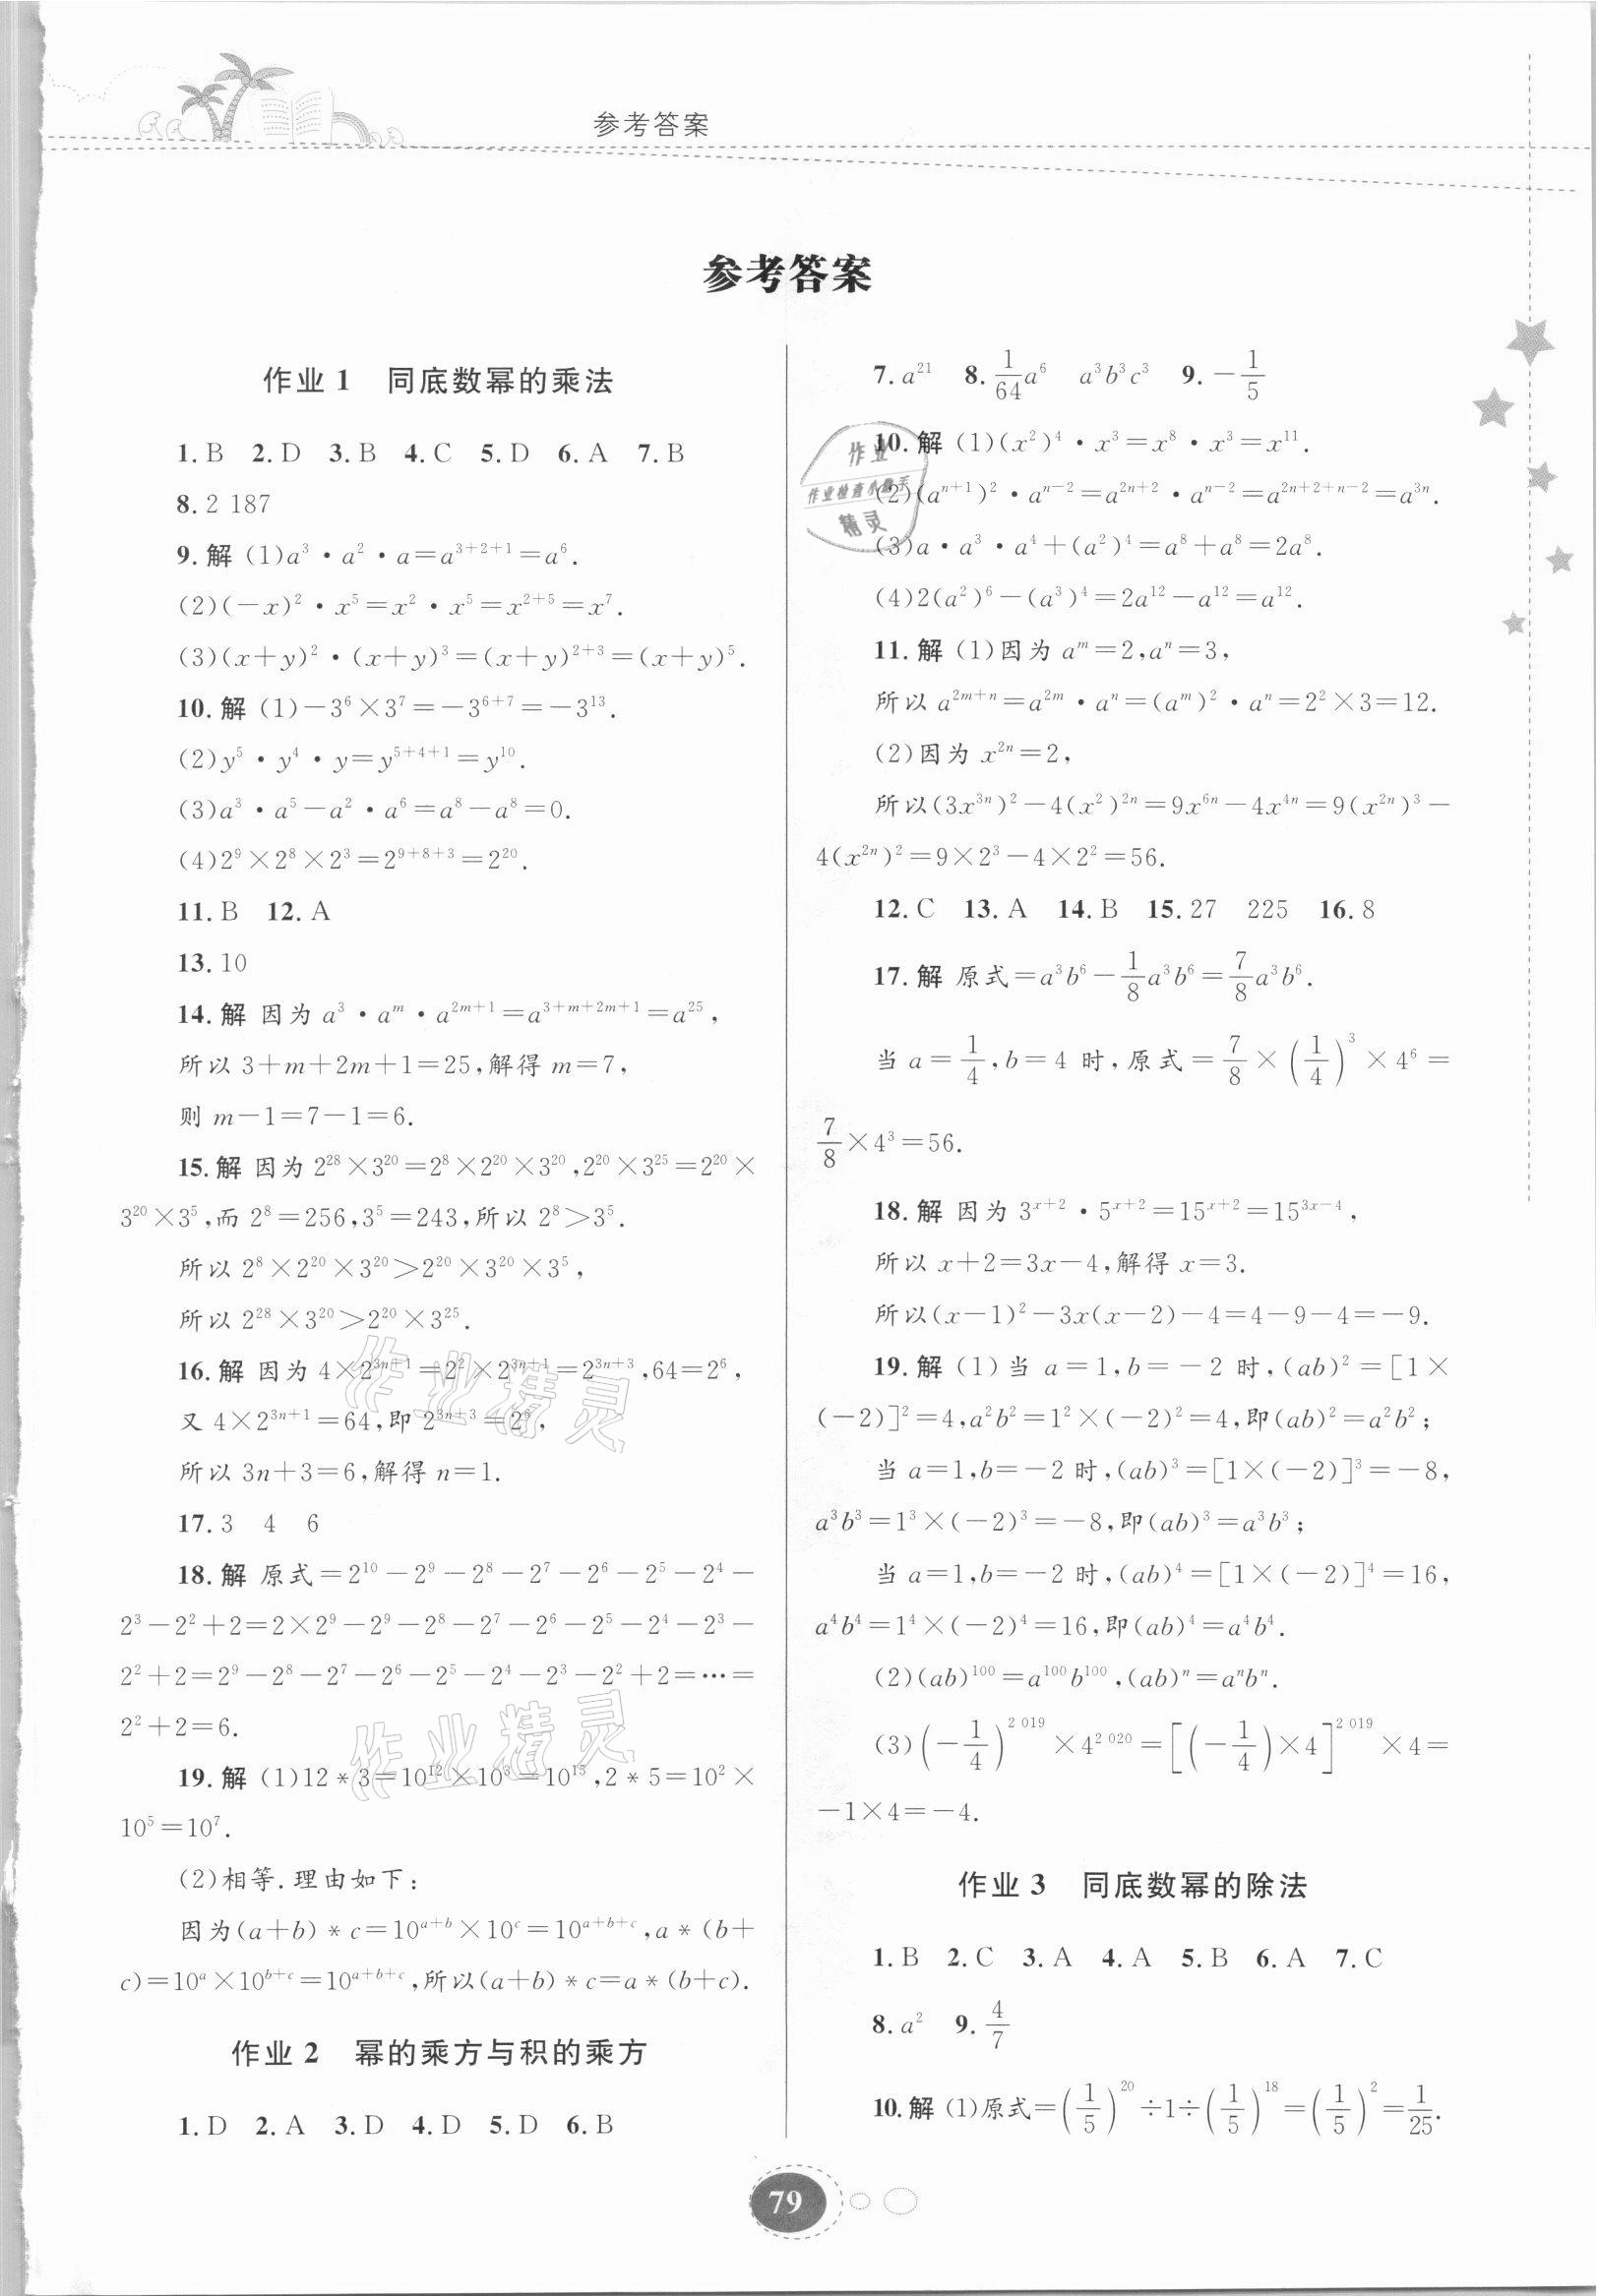 参考答案
参考答案
作业 1 同底数幂的乘法
1. B 2. D 3. B 4. C 5. D 6. A 7. B
8. 2 187
9. 解 (1)a³·a²·a=a³⁺²⁺¹=a⁶.
(2)(-x)²·x⁵=x²·x⁵=x²⁺⁵=x⁷.
(3)(x+y)²·(x+y)³=(x+y)²⁺³=(x+y)⁵.
10. 解 (1)-3⁶×3⁷=-3⁶⁺⁷=-3¹³.
(2)y⁵·y⁴·y=y⁵⁺⁴⁺¹=y¹⁰.
(3)a³·a⁵-a²·a⁶=a⁸-a⁸=0.
(4)2⁹×2⁸×2³=2⁹⁺⁸⁺³=2²⁰.
11. B 12. A
13. 10
14. 解 因为 a³·a^m·a^(2m+1)=a^(3+m+2m+1)=a²⁵,
所以 3+m+2m+1=25,解得 m=7,
则 m-1=7-1=6.
15. 解 因为 2²⁸×3²⁰=2⁸×2²⁰×3²⁰,2²⁰×3²⁵=2²⁰×
3²⁰×3⁵,而 2⁸=256,3⁵=243,所以 2⁸>3⁵.
所以 2⁸×2²⁰×3²⁰>2²⁰×3²⁰×3⁵,
所以 2²⁸×3²⁰>2²⁰×3²⁵.
16. 解 因为 4×2^(3n+1)=2²×2^(3n+1)=2^(3n+3),64=2⁶,
又 4×2^(3n+1)=64,即 2^(3n+3)=2⁶,
所以 3n+3=6,解得 n=1.
17. 3 4 6
18. 解 原式=2¹⁰-2⁹-2⁸-2⁷-2⁶-2⁵-2⁴-
2³-2²+2=2×2⁹-2⁹-2⁸-2⁷-2⁶-2⁵-2⁴-2³-
2²+2=2⁹-2⁸-2⁷-2⁶-2⁵-2⁴-2³-2²+2=…=
2²+2=6.
19. 解 (1)12*3=10¹²×10³=10¹⁵,2*5=10²×
10⁵=10⁷.
(2)相等.理由如下:
因为(a+b)*c=10^(a+b)×10^c=10^(a+b+c),a*(b+
c)=10^a×10^(b+c)=10^(a+b+c),所以(a+b)*c=a*(b+c).
作业 2 幂的乘方与积的乘方
1. D 2. A 3. D 4. D 5. D 6. B
7. a²¹ 8. 1/64 a⁶ a³b³c³ 9. -1/5
10. 解 (1)(x²)⁴·x³=x⁸·x³=x¹¹.
(2)(a^(n+1))²·a^(n-2)=a^(2n+2)·a^(n-2)=a^(2n+2+n-2)=a^(3n).
(3)a·a³·a⁴+(a²)⁴=a⁸+a⁸=2a⁸.
(4)2(a²)⁶-(a³)⁴=2a¹²-a¹²=a¹².
11. 解 (1)因为 a^m=2,a^n=3,
所以 a^(2m+n)=a^(2m)·a^n=(a^m)²·a^n=2²×3=12.
(2)因为 x^(2n)=2,
所以(3x^(3n))²-4(x²)^(2n)=9x^(6n)-4x^(4n)=9(x^(2n))³-
4(x^(2n))²=9×2³-4×2²=56.
12. C 13. A 14. B 15. 27 225 16. 8
17. 解 原式=a³b⁶-1/8 a³b⁶=7/8 a³b⁶.
当 a=1/4,b=4 时,原式=7/8×(1/4)³×4⁶=
7/8×4³=56.
18. 解 因为 3^(x+2)·5^(x+2)=15^(x+2)=15^(3x-4),
所以 x+2=3x-4,解得 x=3.
所以(x-1)²-3x(x-2)-4=4-9-4=-9.
19. 解 (1)当 a=1,b=-2 时,(ab)²=[1×
(-2)]²=4,a²b²=1²×(-2)²=4,即(ab)²=a²b²;
当 a=1,b=-2 时,(ab)³=[1×(-2)]³=-8,
a³b³=1³×(-2)³=-8,即(ab)³=a³b³;
当 a=1,b=-2 时,(ab)⁴=[1×(-2)]⁴=16,
a⁴b⁴=1⁴×(-2)⁴=16,即(ab)⁴=a⁴b⁴.
(2)(ab)¹⁰⁰=a¹⁰⁰b¹⁰⁰,(ab)^n=a^n b^n.
(3)(-1/4)^(2 019)×4^(2 020)=[(-1/4)×4]^(2 019)×4=
-1×4=-4.
作业 3 同底数幂的除法
1. B 2. C 3. A 4. A 5. B 6. A 7. C
8. a² 9. 4/7
10. 解 (1)原式=(1/5)²⁰÷1÷(1/5)¹⁸=(1/5)²=1/25.
79
作业
作业检查小助手
精灵
作业精灵
作业精灵